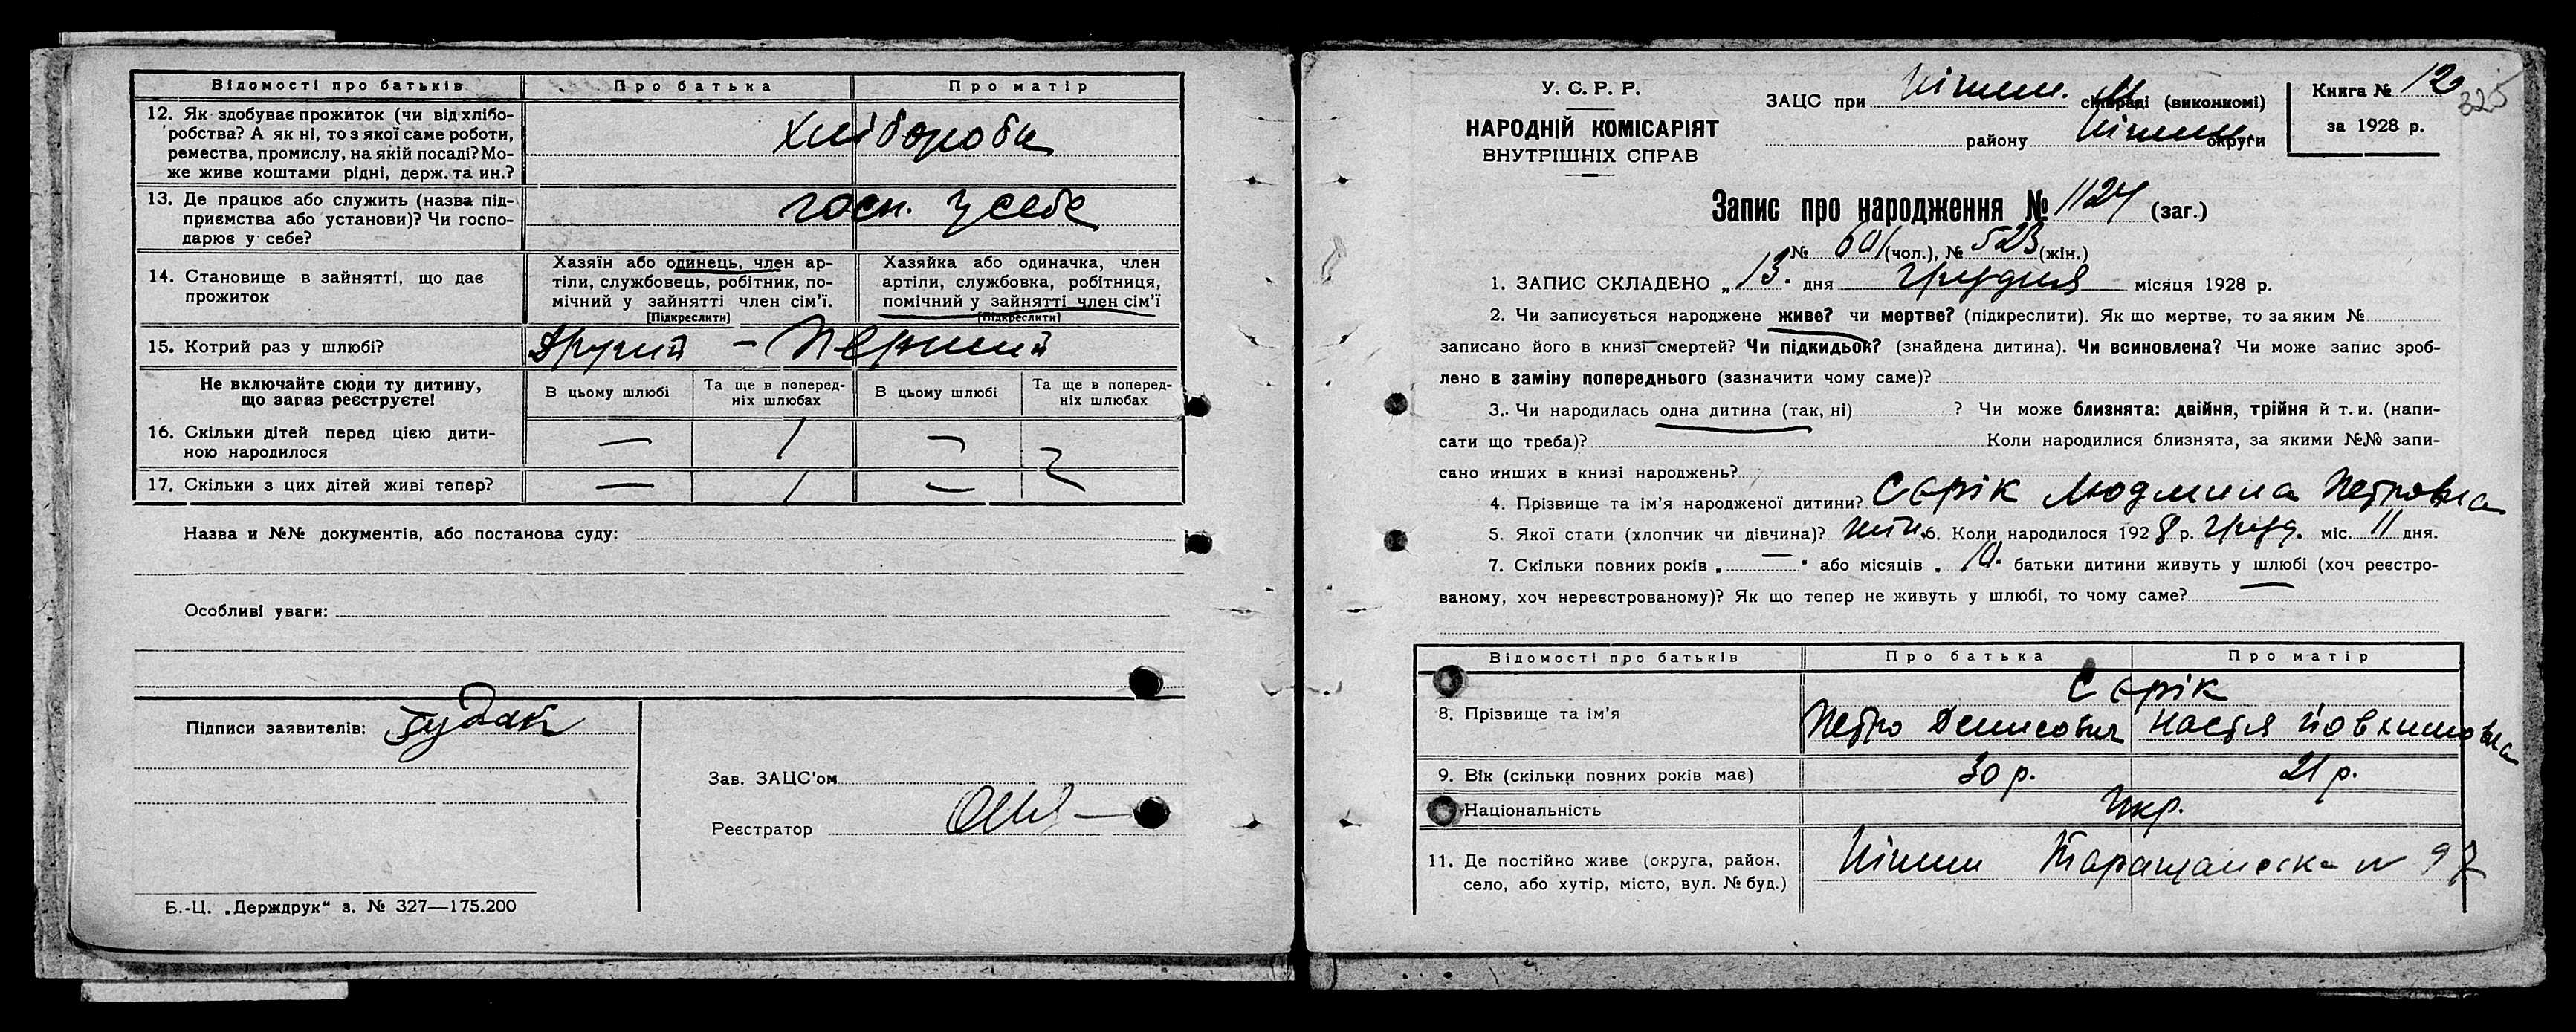 Відомості про батьків Про батька Про матір
12. Як здобуває прожиток (чи від хлібо-
робства? А як ні, то з якої саме роботи,
ремества, промислу, на якій посаді? Мо-
же живе коштами рідні, держ. та ин.?
хлібороби
13. Де працює або служить (назва під-
приємства або установи)? Чи госпо-
дарює у себе?
госп. у себе
14. Становище в зайнятті, що дає
прожиток
Хазяїн або одинець, член ар-
тіли, службовець, робітник, по-
мічний у зайнятті член сім'ї.
(Підкреслити)
Хазяйка або одиначка, член
артіли, службовка, робітниця,
помічний у зайнятті член сім'ї
(Підкреслити)
15. Котрий раз у шлюбі? Другий – Перший
Не включайте сюди ту дитину,
що зараз реєструєте!
В цьому шлюбі
Та ще в поперед-
ніх шлюбах
В цьому шлюбі
Та ще в поперед-
ніх шлюбах
16. Скільки дітей перед цією дити-
ною народилося
— 1 —
17. Скільки з цих дітей живі тепер? — 1 —
Назва и №№ документів, або постанова суду:
Особливі уваги:
Підписи заявителів:
Зав. ЗАЦС'ом
Реєстратор
Б.-Ц. „Держдрук“ з. № 327—175.200
У. С. Р. Р.
НАРОДНІЙ КОМІСАРІЯТ
ВНУТРІШНІХ СПРАВ
ЗАЦС при Ніжин. сільраді (виконкомі)
району Ніжин. округи
Книга № 12
325
за 1928 р.
Запис про народження № 1124 (заг.)
№ 601 (чол.), № 523 (жін.)
1. ЗАПИС СКЛАДЕНО „13. дня грудня місяця 1928 р.
2. Чи записується народжене живе? чи мертве? (підкреслити). Як що мертве, то за яким №
записано його в книзі смертей? Чи підкидьок? (знайдена дитина). Чи всиновлена? Чи може запис зроб-
лено в заміну попереднього (зазначити чому саме)?
3. Чи народилась одна дитина (так, ні) ? Чи може близнята: двійня, трійня й т. и. (напи-
сати що треба)? Коли народилися близнята, за якими №№ запи-
сано инших в книзі народжень?
4. Прізвище та ім'я народженої дитини? Сєрік Людмила Петровна
5. Якої стати (хлопчик чи дівчина)? жін. 6. Коли народилося 1928 р. груд. міс. 11 дня.
7. Скільки повних років „ — “ або місяців „ 10. батьки дитини живуть у шлюбі (хоч реєстро-
ваному, хоч нереєстрованому)? Як що тепер не живуть у шлюбі, то чому саме?
Відомості про батьків Про батька Про матір
8. Прізвище та ім'я
Сєрік
Петро Денисович Настя Йовхимовна
9. Вік (скільки повних років має) 30 р. 21 р.
Національність Укр.
11. Де постійно живе (округа, район,
село, або хутір, місто, вул. № буд.)
Ніжин Таращанська № 97